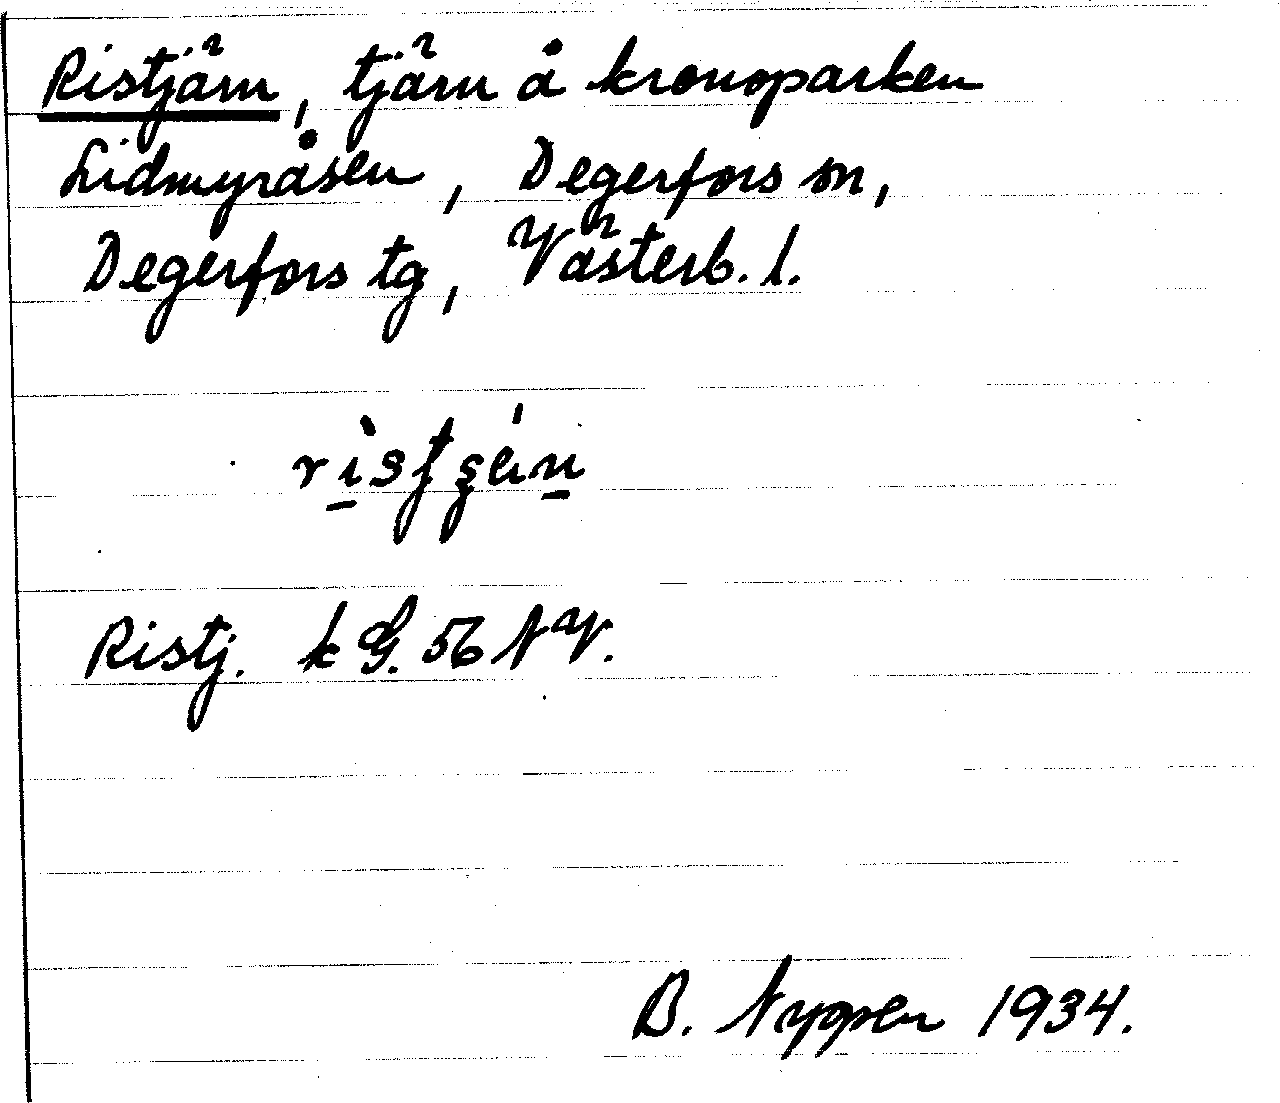 Ristjärn, tjärn å kronoparken
Lidmyråsen, Degerfors sn,
Degerfors tg, Västerb. l.
Ristj. k G. 56 NV.
B. Nyppen 1934.